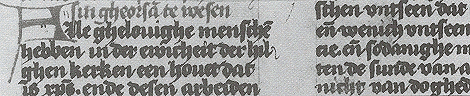 sin gheorsā te wesen
Alle ghelouighe menschē
hebben in der ewicheit der hil
ghen kerken een houet dat
ende desen arbeiden
schen vntseen dat
eñ wenich vntseen
eñ sodanighe
ten de sunde van
nicht van